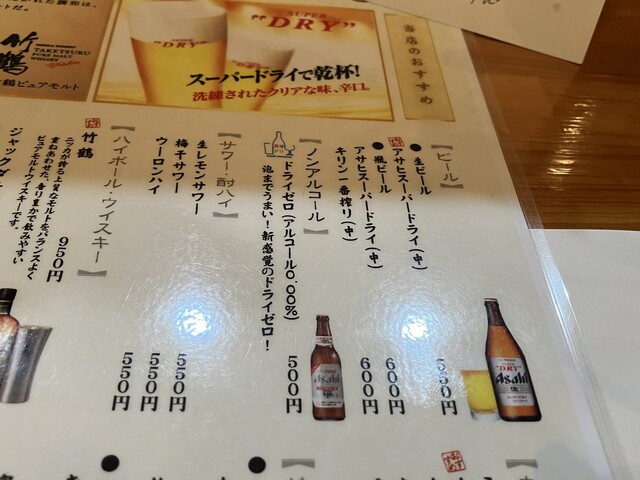 SUPER
"DRY"
スーパードライで乾杯!
洗練されたクリアな味、辛口。
当店のおすすめ
竹鶴
TAKETSURU
PURE MALT
WHISKY
鶴ピュアモルト
【ビール】
●生ビール
アサヒスーパードライ(中) 550円
●瓶ビール
アサヒスーパードライ(中) 600円
キリン一番搾り(中) 600円
【ノンアルコール】
ドライゼロ(アルコール0.00%) 500円
泡までうまい!新感覚のドライゼロ!
【サワー・酎ハイ】
生レモンサワー 550円
梅干サワー 550円
ウーロンハイ 550円
【ハイボール・ウイスキー】
竹鶴 950円
ニッカが誇る上質なモルトをバランスよく
重ねあわせた、香り豊かで飲みやすい
ピュアモルトウイスキーです。
ジャックダ
Asahi
"DRY"
Asahi
生